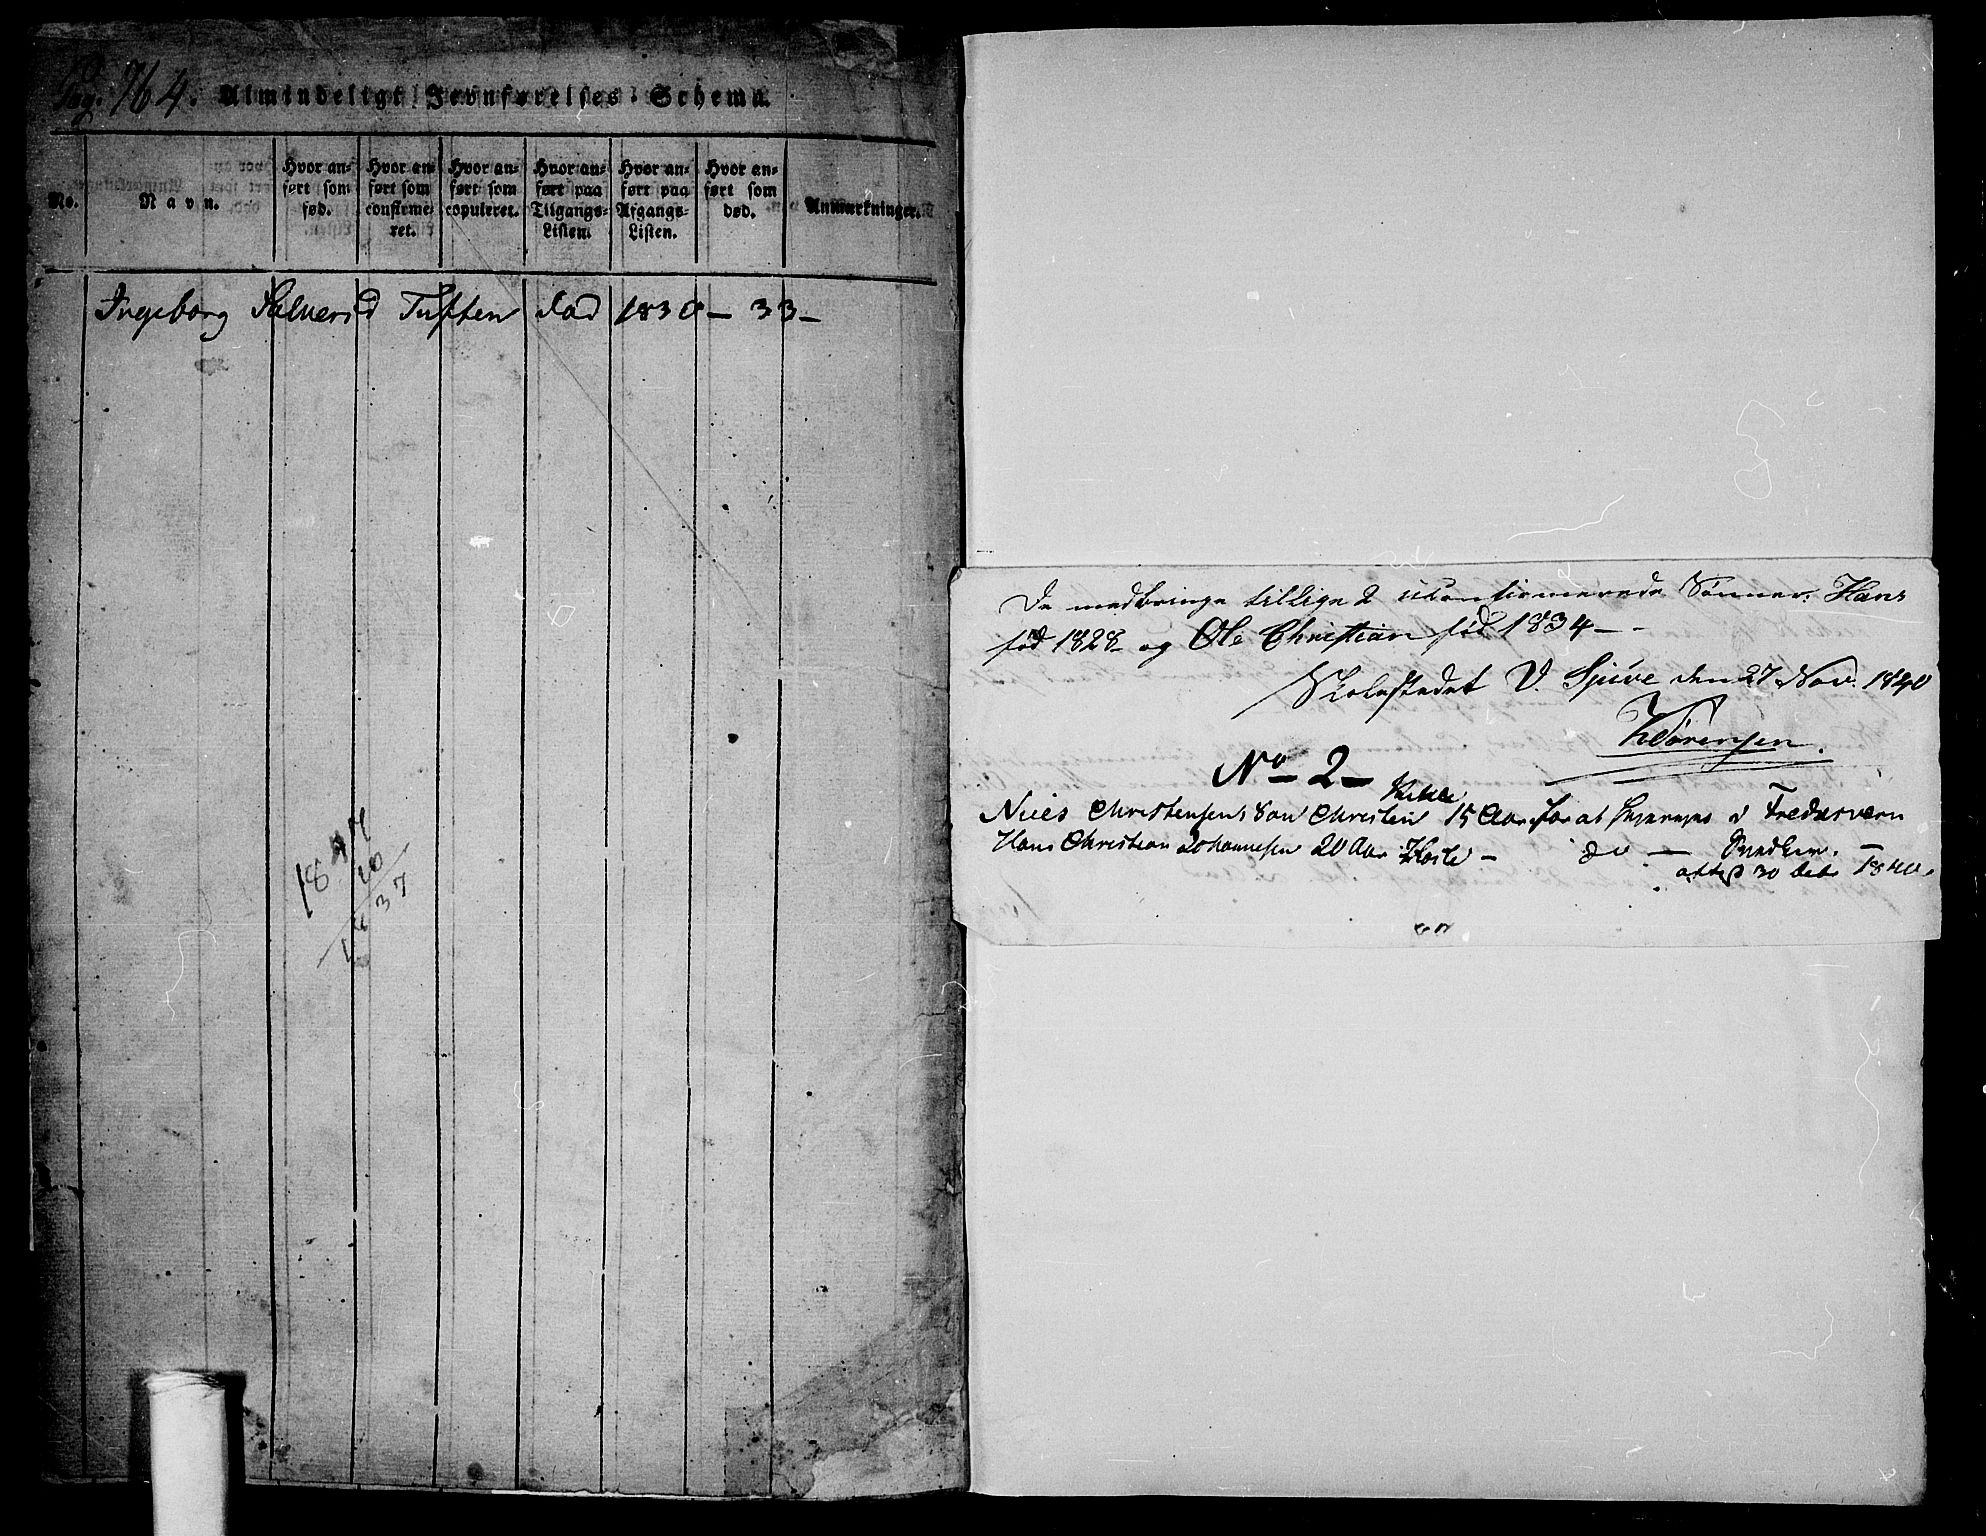 Pag. 764. Almindeligt Jevnførelses-Schema.
No.
Navn.
Hvor an-
ført som
fød.
Hvor an-
ført som
confirme-
ret.
Hvor an-
ført som
copuleret.
Hvor an-
ført paa
Tilgangs-
Listen.
Hvor an-
ført paa
Afgangs-
Listen.
Hvor an-
ført som
død.
Anmærkninger.
Ingeborg Halversd Tuften død 1830 - 33 -
20
37
De medbringe tillige 2 uconfirmerede Sønner: Hans
fød 1828 og Ole Christian fød 1834 - -
Skolestedet V. Gjuve den 27 Nov. 1840
Sørensen.
No 2 -
Niels Christensens Søn Christen 15 Aar for at i Fredresværn
Hans Christian Johannesen 20 Aar - do -
attest 30 Octr 1840.